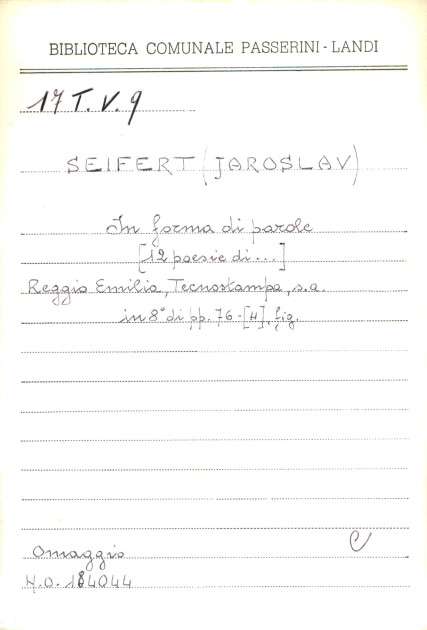 BIBLIOTECA COMUNALE PASSERINI - LANDI
17 T. V. 9
SEIFERT (JAROSLAV)
In forma di parole
[12 poesie di...]
Reggio Emilia, Tecnostampa, s.a.
in 8° di pp. 76-[4], fig.
C
Omaggio
N.O. 184044